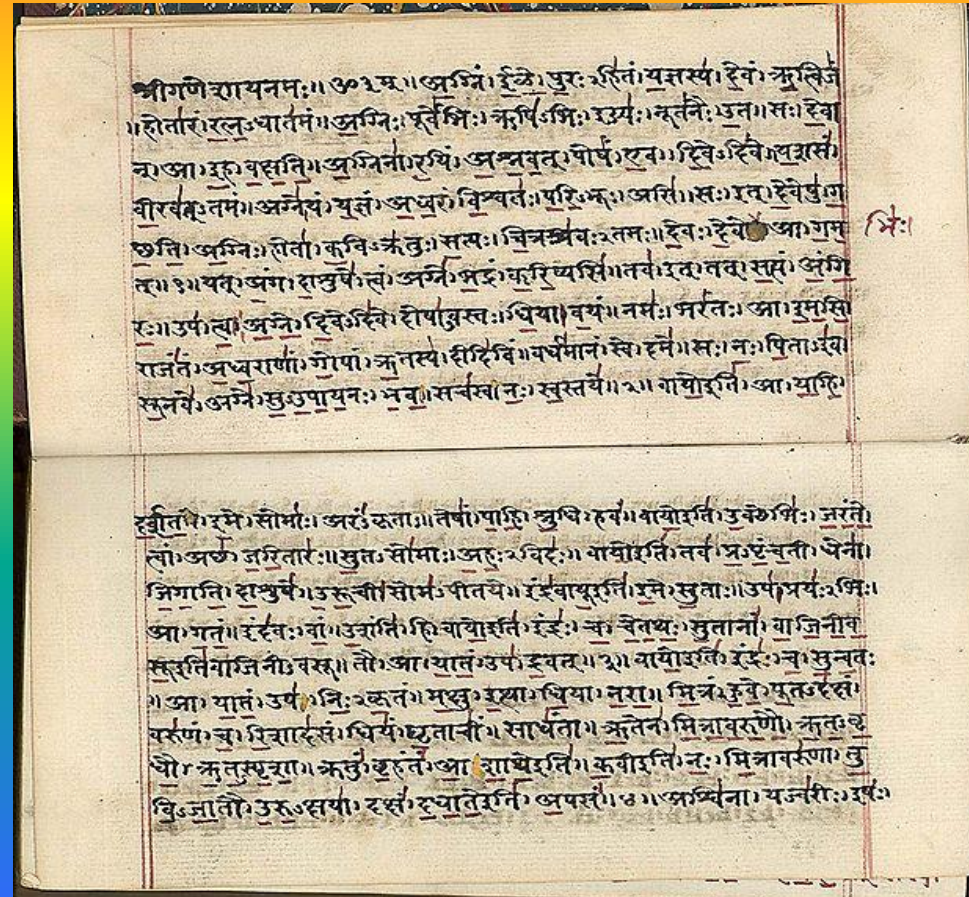 श्रीगणेशायनमः॥ॐ३म्॥अग्निं।ईळे।पुरःऽहितं।यज्ञस्य।देवं।ऋत्विजं
॥होतारं।रत्नऽधातमं॥अग्निः।पूर्वेभिः।ऋषिऽभिः।ईड्यः।नूतनैः।उत॥सः।देवा
न्।आ।इह।वक्षति॥अग्निना।रयिं।अश्नवत्।पोषं।एव।दिवेऽदिवे॥यशसं।
वीरवत्ऽतमं॥अग्ने।यं।यज्ञं।अध्वरं।विश्वतः।परिऽभूः।असि॥सः।इत्।देवेषु।ग
छति।अग्निः।होता।कविऽक्रतुः।सत्यः।चित्रश्रवःऽतमः॥देवः।देवे आ।गम
भिः।
त्॥१॥यत्।अंग।दाशुषे।त्वं।अग्ने।भद्रं।करिष्यसि॥तव।इत्।तत्।सत्यं।अंगि
रः॥उप।त्वा।अग्ने।दिवेऽदिवे।दोषाऽवस्तः।धिया।वयं॥नमः।भरंतः।आ।इमसि
राजंतं।अध्वराणां।गोपां।ऋतस्य।दीदिविं॥वर्धमानं।स्वे।दमे॥सः।नः।पिताऽइव।
सूनवे।अग्ने।सुऽउपायनः।भव॥सचस्व।नः।स्वस्तये॥२॥वायोइति।आ।याहि।
दर्शत।इमे।सोमाः।अरंऽकृताः॥तेषां।पाहि।श्रुधि।हवं॥वायोइति।उक्थेभिः।जरंते।
त्वां।अछ।जरितारः॥सुतऽसोमाः।अहःऽविदः॥वायोइति।तव।प्रऽपृंचती।धेना।
जिगाति।दाशुषे॥उरूची।सोमऽपीतये॥इंद्रवायूइति।इमे।सुताः॥उप।प्रयःऽभिः।
आ।गतं॥इंदवः।वां।उशंति।हि॥वायोइति।इंद्रः।च।चेतथः।सुतानां।वाजिनीव
सूइतिवाजिनीऽवसू॥तौ।आ।यातं।उप।द्रवत्॥३॥वायोइति।इंद्रः।च।सुन्वतः
॥आ।यातं।उप।निःऽकृतं॥मक्षु।इत्था।धिया।नरा॥मित्रं।हुवे।पूतऽदक्षं।
वरुणं।च।रिशादसं॥धियं।घृताचीं।साधंता॥ऋतेन।मित्रावरुणौ।ऋतऽवृ
धौ।ऋतऽस्पृशा॥क्रतुं।बृहंतं।आशाथेइति॥कवीइति।नः।मित्रावरुणा।तु
विऽजातौ।उरुऽक्षया॥दक्षं।दधातेइति।अपसं॥४॥अश्विना।यज्वरीः।इषः।